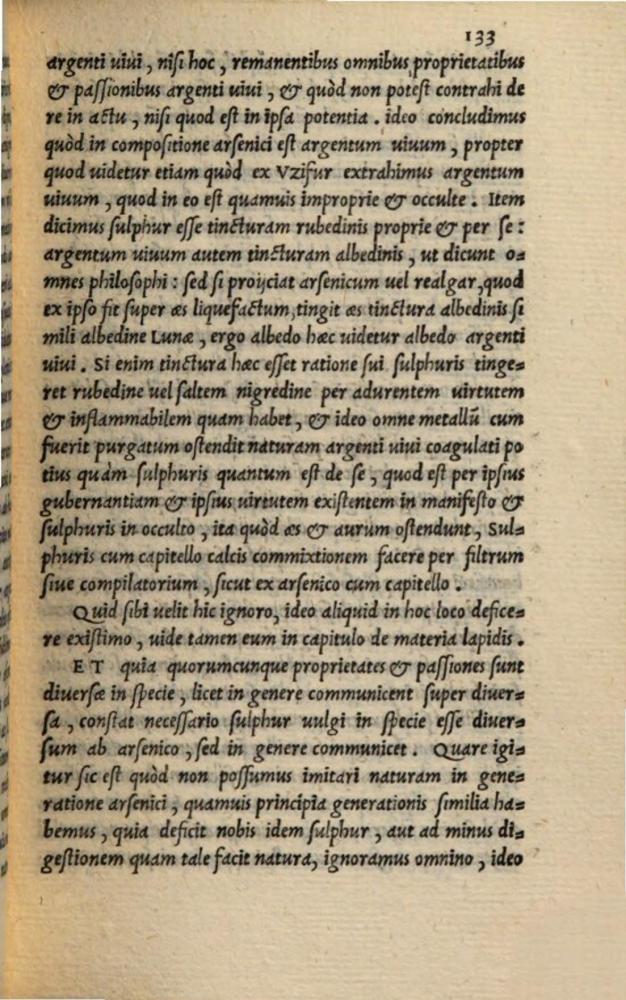 133
argenti uiui, nisi hoc, remanentibus omnibus proprietatibus
& passionibus argenti uiui, & quòd non potest contrahi de
re in actu, nisi quod est in ipsa potentia. ideo concludimus
quòd in compositione arsenici est argentum uiuum, propter
quod uidetur etiam quòd ex Vzifur extrahimus argentum
uiuum, quod in eo est quamuis improprie & occulte. Item
dicimus sulphur esse tincturam rubedinis proprie & per se:
argentum uiuum autem tincturam albedinis, ut dicunt o=
mnes philosophi: sed si proijciat arsenicum uel realgar, quod
ex ipso fit super æs liquefactum, tingit æs tinctura albedinis si
mili albedine Lunæ, ergo albedo hæc uidetur albedo argenti
uiui. Si enim tinctura hæc esset ratione sui sulphuris tinge=
ret rubedine uel saltem nigredine per adurentem uirtutem
& inflammabilem quam habet, & ideo omne metallū cum
fuerit purgatum ostendit naturam argenti uiui coagulati po
tius quàm sulphuris quantum est de se, quod est per ipsius
gubernantiam & ipsius uirtutem existentem in manifesto &
sulphuris in occulto, ita quòd æs & aurum ostendunt, Sul=
phuris cum capitello calcis commixtionem facere per filtrum
siue compilatorium, sicut ex arsenico cum capitello.
Quid sibi uelit hic ignoro, ideo aliquid in hoc loco defice=
re existimo, uide tamen eum in capitulo de materia lapidis.
ET quia quorumcunque proprietates & passiones sunt
diuersæ in specie, licet in genere communicent super diuer=
sa, constat necessario sulphur uulgi in specie esse diuer=
sum ab arsenico, sed in genere communicet. Quare igi=
tur sic est quòd non possumus imitari naturam in gene=
ratione arsenici, quamuis principia generationis similia ha=
bemus, quia deficit nobis idem sulphur, aut ad minus di=
gestionem quam tale facit natura, ignoramus omnino, ideo